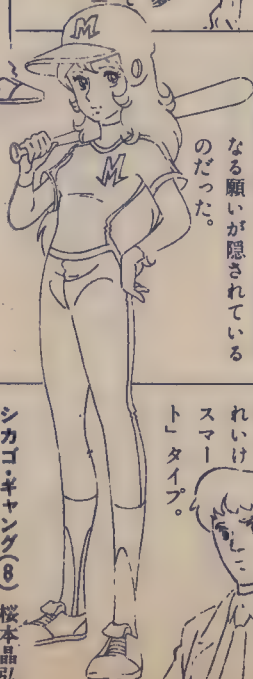 M
M
なる願いが隠されている
のだった。
れいけ
スマー
ト」タイプ。
シカゴ・ギャング(8) 桜本晶弘